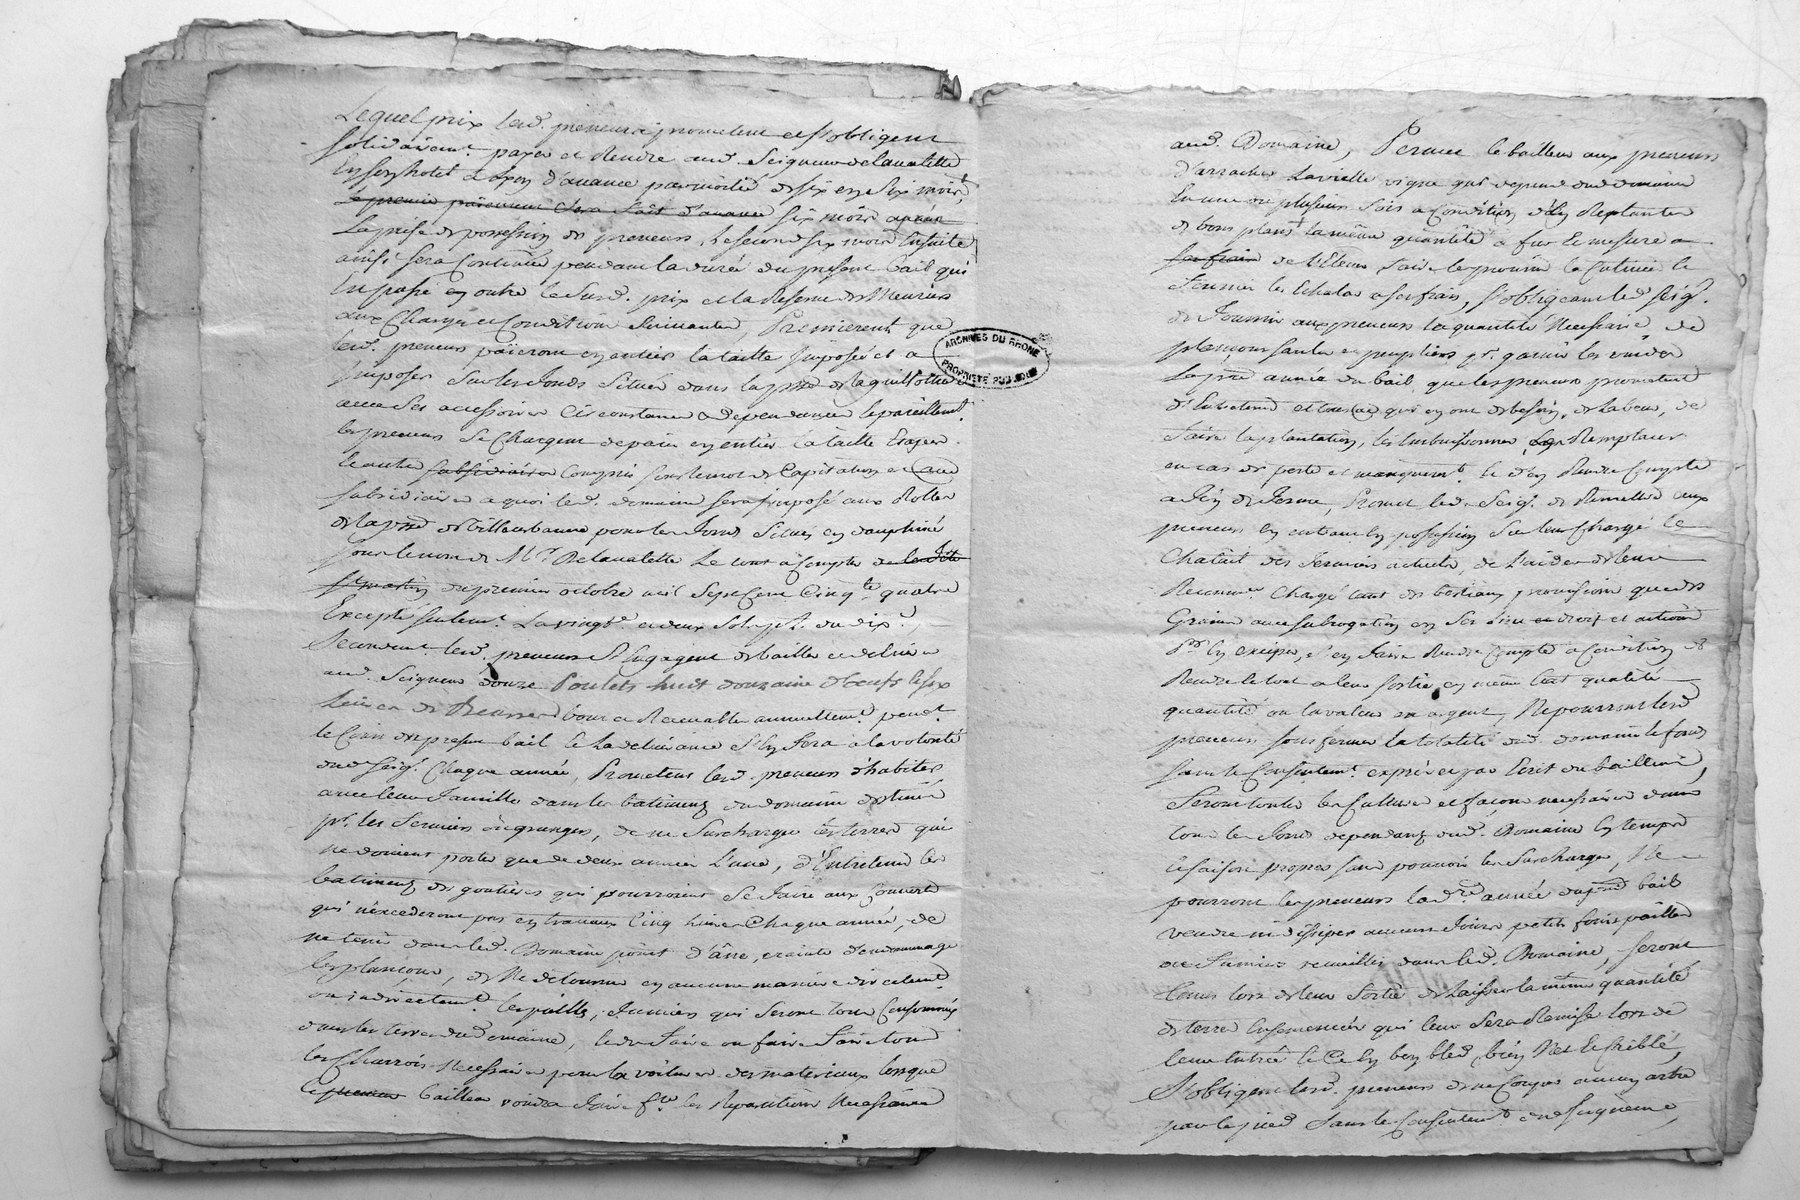 Lequel prix lesd. preneurs prometent et s'obligent
solidairem.t payer et rendre aud. Seigneur Delavalette
En son hotel à Lyon d'avance par moitié de six en six mois,
le premier paiement sera fait d'avance six mois après
La prise de possession des preneurs, le second six mois ensuite
ainsi sera Continué pendant la durée du present bail qui
En passé en outre le susd. prix et la Reserve des Meuriers
aux Charges et Conditions Suivantes, Premierem.t que
lesd. preneurs paieront en entier la taille Imposée et a
Imposer sur les fonds Situés dans la psse de la guillottiere
avec ses accessoires Circonstances & dependances le pareillem.t
les preneurs Se Chargent de paier en entier la taille
et autres subsidiaires Compris sous le mot de Capitation et
Subsidiaires a quoi led. domaine sera Imposé aux Rolles
de la psse de Villeurbanne pour les fonds Situés en dauphiné
sous le nom de Mr Delavalette Le tout à Compter de la fête
St martin du premier octobre mil Sept Cent Cinqte quatre
Excepté seulem.t La vingte et deux Sols pr £ du dix.e,
Secondem.t lesd. preneurs S'Engagent de bailler et delivrer
aud. Seigneur douze Poulets huit douzaine d'oeufs & six
Livres de Beurre bons et Recevables annuellem.t pend.t
le Cours du present bail et la delivrance S'En fera à la volonté
dud. Seig.r Chaque année, Prometent lesd. preneurs d'habiter
avec leur famille dans les batimens du domaine destinés
pr. les fermiers ou grangers, de ne Surcharger les terres qui
ne doivent porter que de deux années L'une, d'Entretenir les
batimens des goutieres qui pourroient Se faire aux Couverts
qui n'excederont pas en travaux Cinq livres Chaque année, de
ne tenir dans led. Domaine point d'âne, crainte d'endommager
les plançons, de Ne detourner en aucune maniere directem.t
ou indirectem.t les pailles, fumiers qui seront tous Consommés
dans les terres dud. domaine, de faire ou faire faire tous
les Charrois Necessaires pour la voiture des materiaux lorsque
le preneur bailleur voudra faire fre les Reparations Necessaires
ARCHIVES DU RHONE
PROPRIÉTÉ PUBLIQUE
aud. Domaine, Permet le bailleur aux preneurs
d'arracher La vieille vigne qui depend dud. domaine
En une ou plusieurs fois a Condition d'En Replanter
de bons plans la même quantité a fur et mesure a
ses frais de L'Elever faire le provin la Cultiver et
fournir les Echalas a ses frais, s'obligeant led. Seig.r
de fournir aux preneurs la quantité Necessaire de
pr. garnir les vuides
La pre année du bail, que les preneurs prometent
d'Entretenir et tous qui en ont de besoin, de labeur, de
faire la plantation, les Embuissonner, Les Remplacer
en cas de perte et manquem.t et d'en Rendre Compte
a fin de ferme, Promet led. Seig.r de Remettre aux
preneurs en entrant en possession Sur leur Chargé le
Chatail des fermiers actuels, de L'aider de leur
Chargé tant des bestiaux provisions que des
Grains avec subrogation en Ses lieu et droit et actions
Pr. En exciper, et en faire Rendre Compte a Condition de
Rendre le tout a leur sortie en même état qualité
quantité ou la valeur en argent, Ne pourront lesd.
preneurs sous fermer la totalité dud. domaine et fonds
sans le Consentem.t exprès et par Ecrit du bailleur,
Feront toutes les Cultures et façons necessaires dans
tous les fonds dependans dud. Domaine En temps
et saison propres sans pouvoir les Surcharger, Ne
pourront les preneurs la dre année du psent bail
vendre ni dissiper aucuns foins petits foins pailles
ou fumiers recueillis dans led. Domaine, feront
tenus lors de leur Sortie de Laisser la même quantité
de terres Ensemencées qui leur Sera Remise lors de
leur entrée et Ce En bon bled, bien Net et Criblé,
S'obligent lesd. preneurs de ne Couper aucun arbre
par le pied Sans le Consentem.t dud. Seigneur,